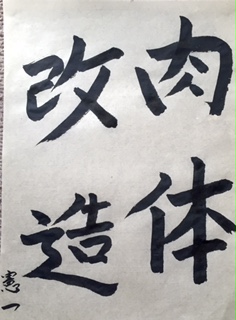 肉体
改造
憲一